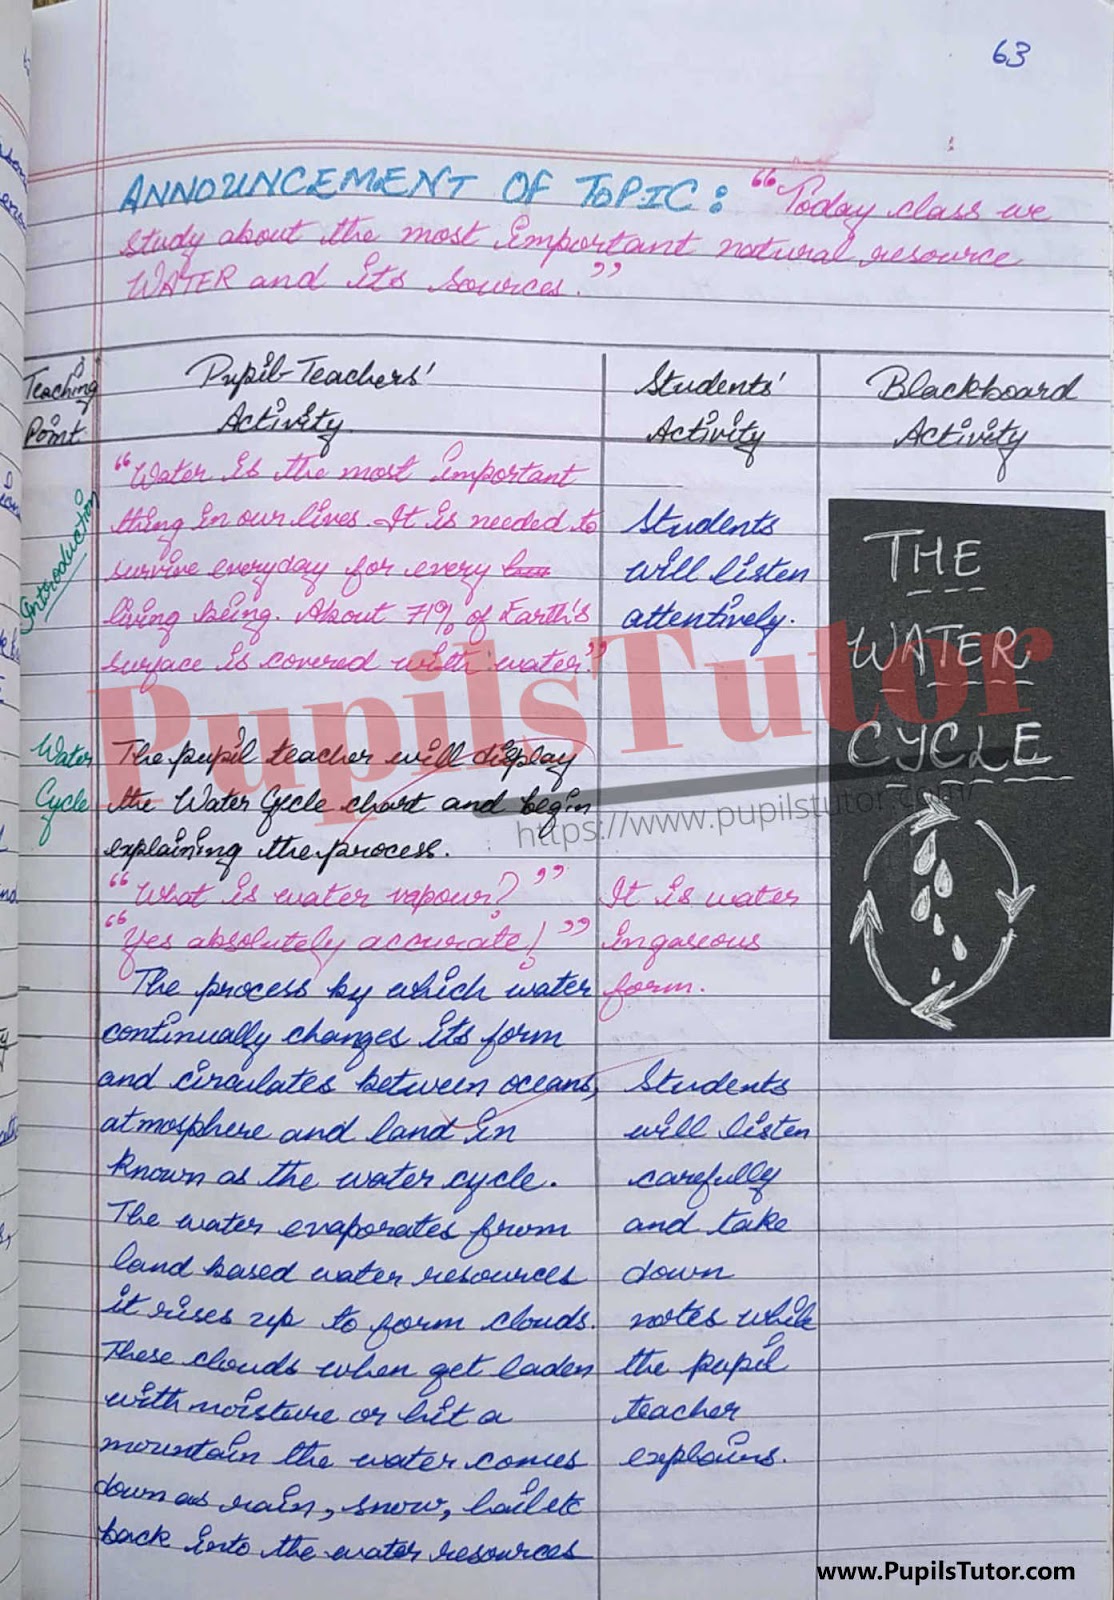 63
ANNOUNCEMENT OF TOPIC: "Today class we
study about the most important natural resource
WATER and its sources."
Teaching
Point
Pupil-Teachers'
Activity
Students'
Activity
Blackboard
Activity
Introduction
"Water is the most important
thing in our lives. It is needed to
survive everyday for every
living being. About 71% of Earth's
surface is covered with water."
Students
will listen
attentively.
THE
WATER
CYCLE
PupilsTutor
https://www.pupilstutor.com/
Water
Cycle
The pupil teacher will display
the Water Cycle chart and begin
explaining the process.
"What is water vapour?"
"Yes absolutely accurate!"
It is water
in gaseous
form.
The process by which water
continually changes its form
and circulates between oceans,
atmosphere and land in
known as the water cycle.
The water evaporates from
land based water resources
it rises up to form clouds.
These clouds when get laden
with moisture or hit a
mountain the water comes
down as rain, snow, hail etc
back into the water resources
Students
will listen
carefully
and take
down
notes while
the pupil
teacher
explains.
www.PupilsTutor.com